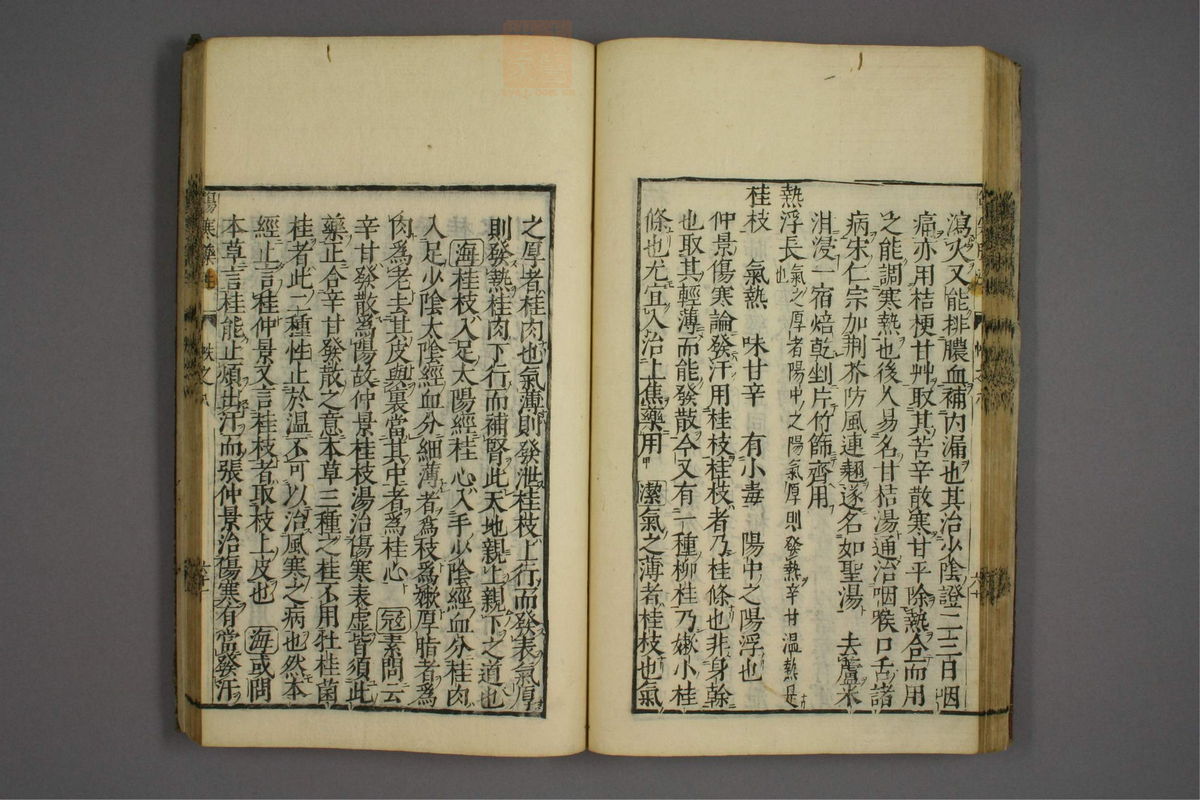 瀉火又能排膿血補內漏也其治少陰證二三日咽
痛亦用桔梗甘艸取其苦辛散寒甘平除熱合而用
之能調寒熱也後人易名甘桔湯通治咽喉口舌諸
病宋仁宗加荆芥防風連翹遂名如聖湯 去蘆米
泔浸一宿焙乾剉片竹篩齊用
熱浮長也氣之厚者陽中之陽氣厚則發熱辛甘溫熱是
桂枝 氣熱 味甘辛 有小毒 陽中之陽浮也
仲景傷寒論發汗用桂枝桂枝者乃桂條也非身幹
也取其輕薄而能發散今又有一種柳桂乃嫩小桂
條也尤宜入治上焦藥用 潔氣之薄者桂枝也氣
之厚者桂肉也氣薄則發泄桂枝上行而發表氣厚
則發熱桂肉下行而補腎此天地親上親下之道也
海桂枝入足太陽經桂心入手少陰經血分桂肉
入足少陰太陰經血分細薄者爲枝爲嫩厚脂者爲
肉爲老去其皮與裏當其中者爲桂心 冠素問云
辛甘發散爲陽故仲景桂枝湯治傷寒表虛皆須此
藥正合辛甘發散之意本草三種之桂不用牡桂菌
桂者此二種性止於溫不可以治風寒之病也然本
經止言桂仲景又言桂枝者取枝上皮也 海或問
本草言桂能止煩出汗而張仲景治傷寒有當發汗
傷寒藥性